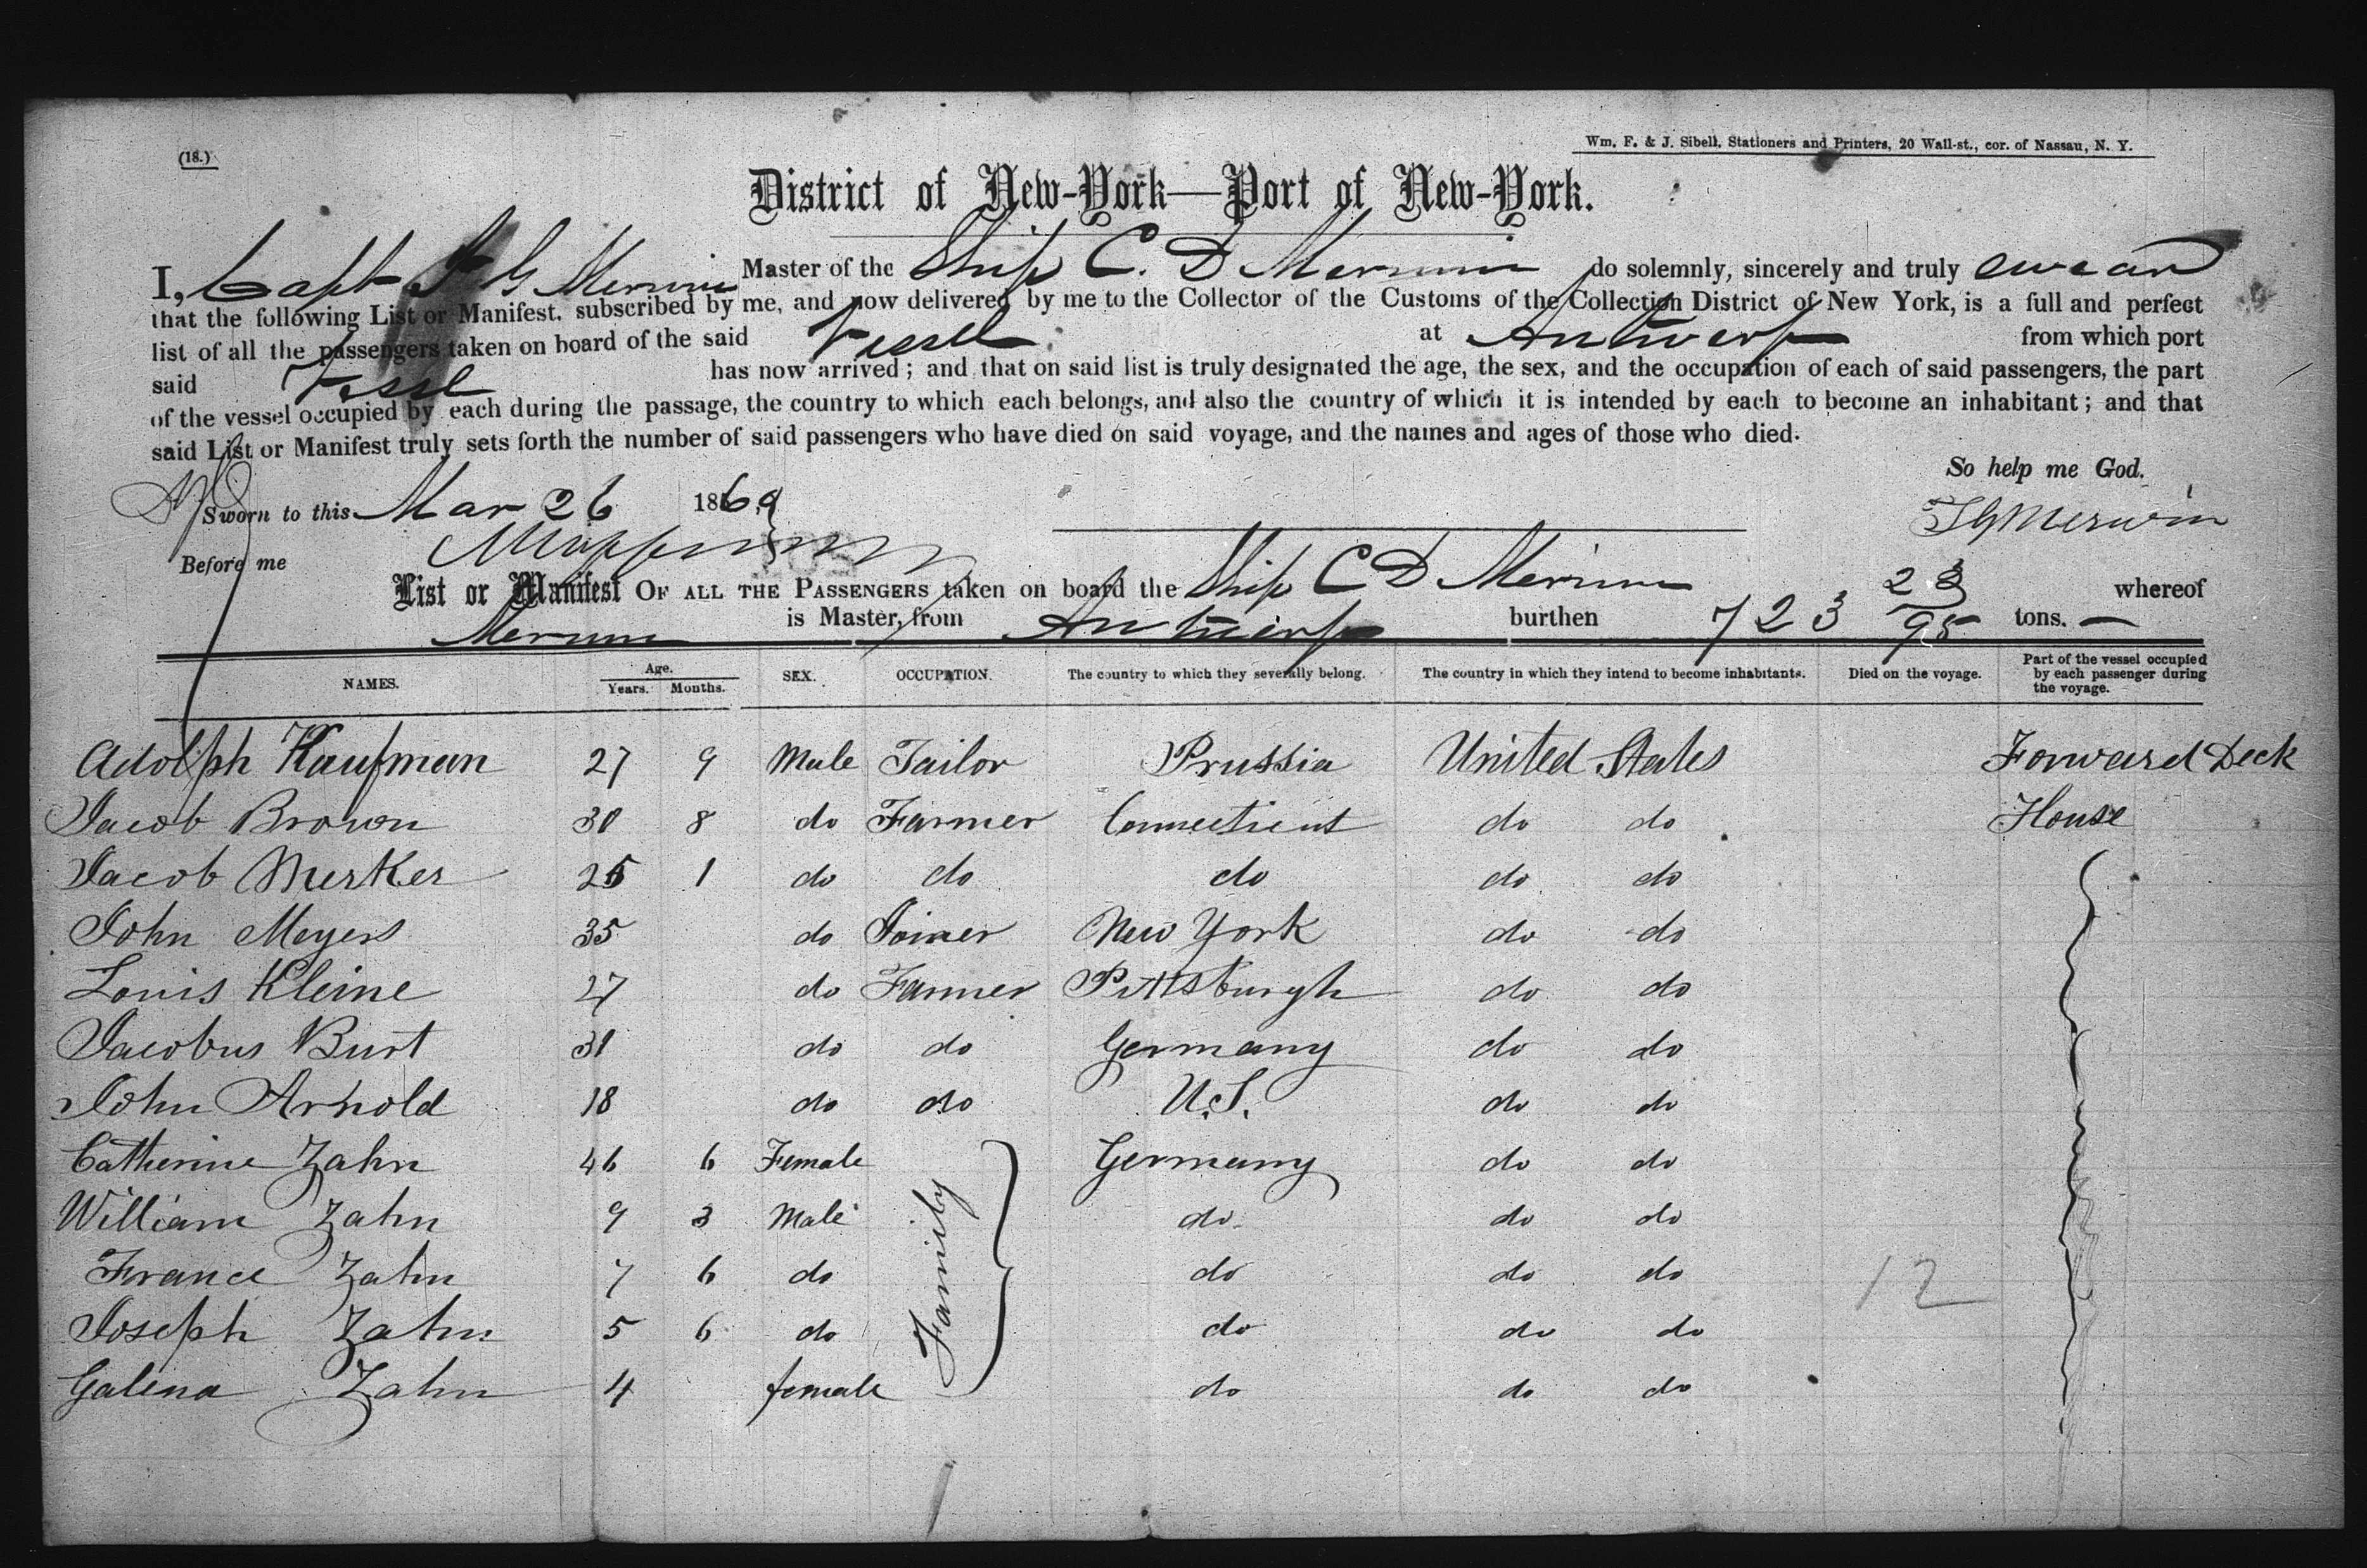 (18.)
Wm. F. & J. Sibell, Stationers and Printers, 20 Wall-st., cor. of Nassau, N. Y.
District of New-York—Port of New-York.
I, Capt G Merwin Master of the Ship C. D Merwin do solemnly, sincerely and truly swear
that the following List or Manifest, subscribed by me, and now delivered by me to the Collector of the Customs of the Collection District of New York, is a full and perfect
list of all the passengers taken on board of the said Vessel at Antwerp from which port
said Vessel has now arrived; and that on said list is truly designated the age, the sex, and the occupation of each of said passengers, the part
of the vessel occupied by each during the passage, the country to which each belongs, and also the country of which it is intended by each to become an inhabitant; and that
said List or Manifest truly sets forth the number of said passengers who have died on said voyage, and the names and ages of those who died.
So help me God.
Sworn to this Mar 26 1869
Merwin
Before me
List or Manifest OF ALL THE PASSENGERS taken on board the Ship C D Merwin whereof
Merwin is Master, from Antwerp burthen 723 23/95 tons.
NAMES. Age. Years. Months. SEX. OCCUPATION. The country to which they severally belong. The country in which they intend to become inhabitants. Died on the voyage. Part of the vessel occupied by each passenger during the voyage.
Adolph Kaufman 27 9 Male Tailor Prussia United States Forward Deck
Jacob Brown 30 8 do Farmer Connecticut do do House
Jacob Merker 25 1 do do do do do
John Meyers 35 do Joiner New York do do
Louis Kleine 27 do Farmer Pittsburgh do do
Jacobus Burt 31 do do Germany do do
John Arnold 18 do do U.S. do do
Catherine Zahn 46 6 Female Germany do do
William Zahn 9 3 Male do do do
France Zahn 7 6 do do do do
Joseph Zahn 5 6 do do do do
Galena Zahn 4 female do do do
Family
12